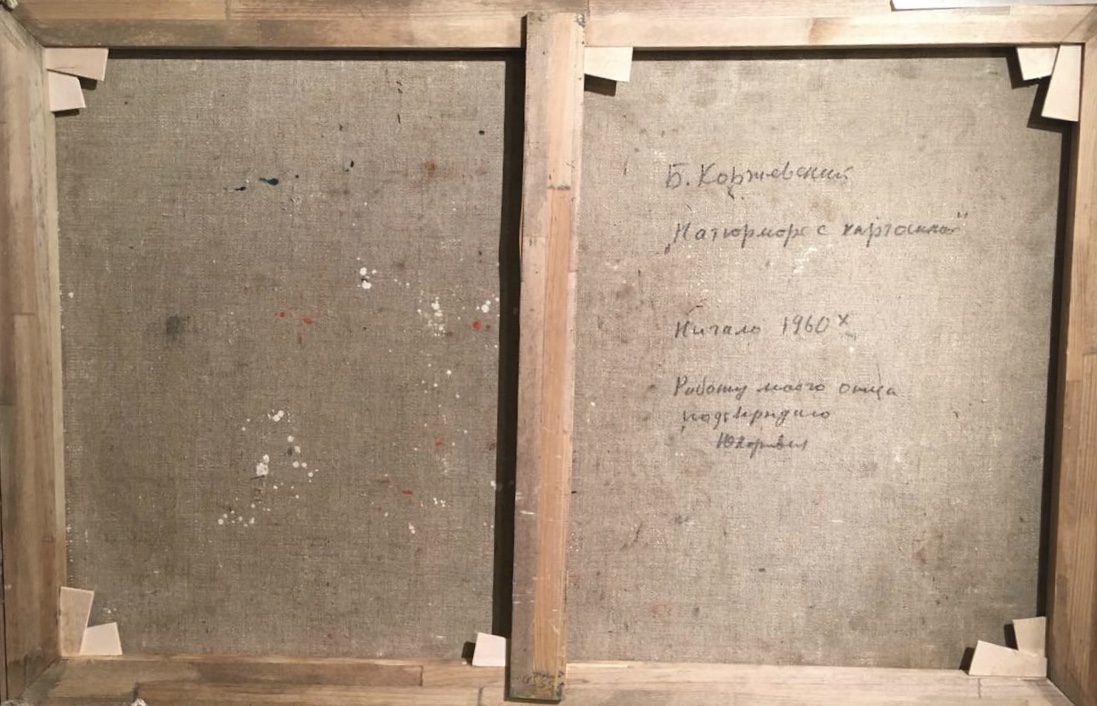 Б. Коржевский
„Натюрморт с картошкой"
Начало 1960х
Работу моего отца
подтверждаю